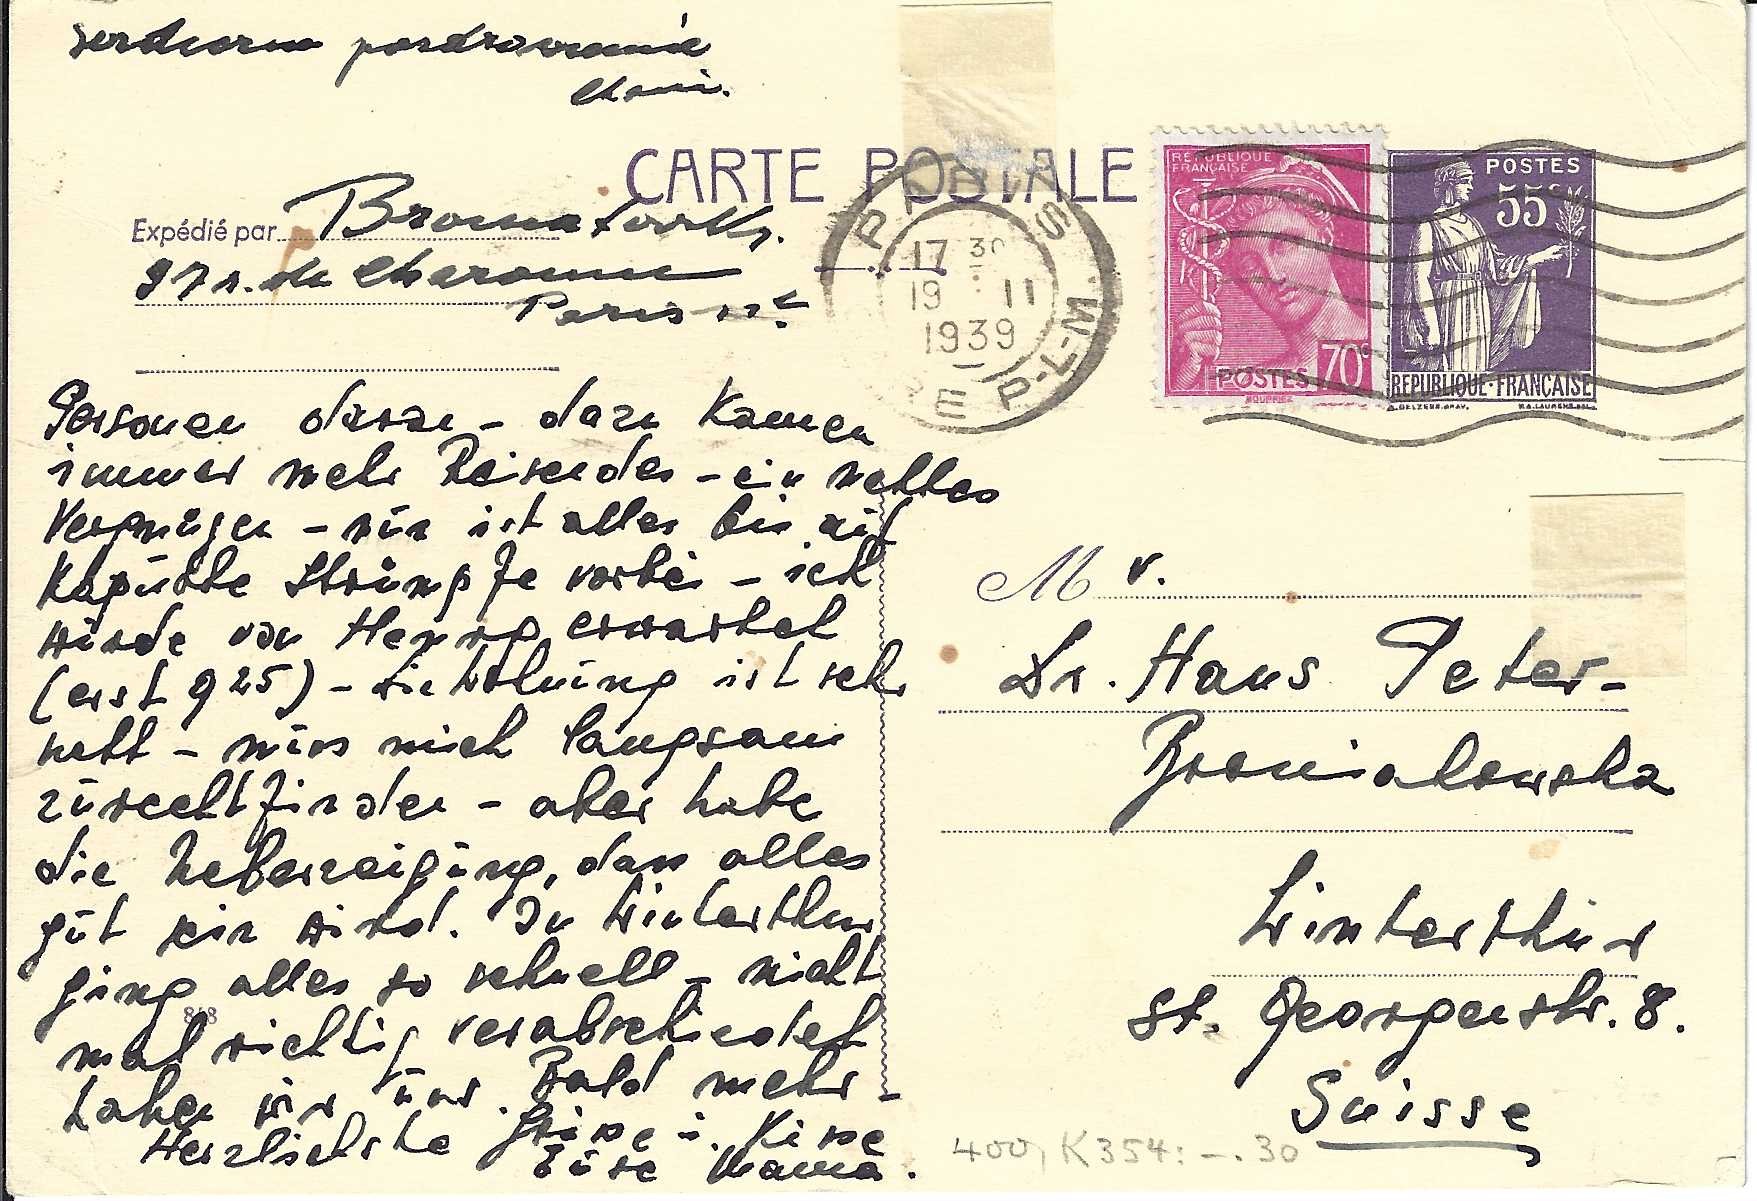 serdeczne pozdrowienia
CARTE POSTALE
Expédié par
97 r. de Charonne
Paris 11e
PARIS
GARE P-L-M
17 30
19 11
1939
RÉPUBLIQUE
FRANÇAISE
POSTES 70c
POSTES
55c
REPUBLIQUE-FRANÇAISE
Personen daran – dazu kamen
immer mehr Reisendes – ein nettes
Vergnügen – nun ist alles bis auf
kaputte Strümpfe vorbei – ich
wurde von Henry erwartet
(erst 9 25) – die Wohnung ist sehr
nett – muss mich langsam
zurechtfinden – aber habe
die Ueberzeigung, dass alles
gut sein wird. In Winterthur
ging alles so schnell – nicht
818
mal richtig verabschiedet
haben wir uns. Bald mehr –
Herzlichste Grüsse u. Küsse
Eure Mama.
M r.
Dr. Hans Peter-
Winterthur
St. Georgenstr. 8.
Suisse
400, K 354: –.30